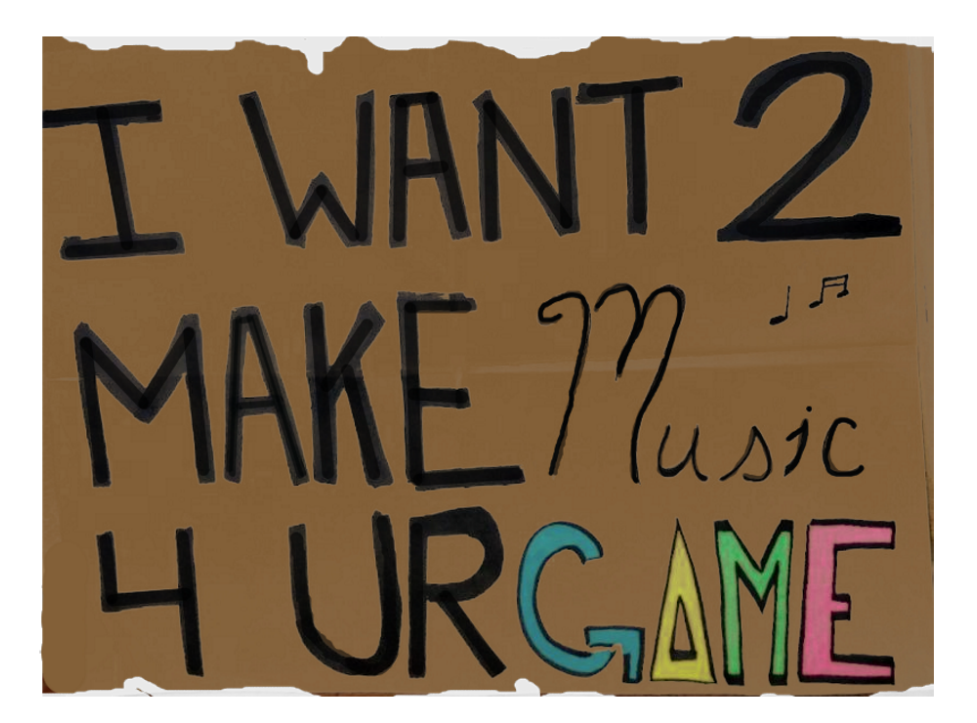 I WANT 2
MAKE Music
4 UR GAME